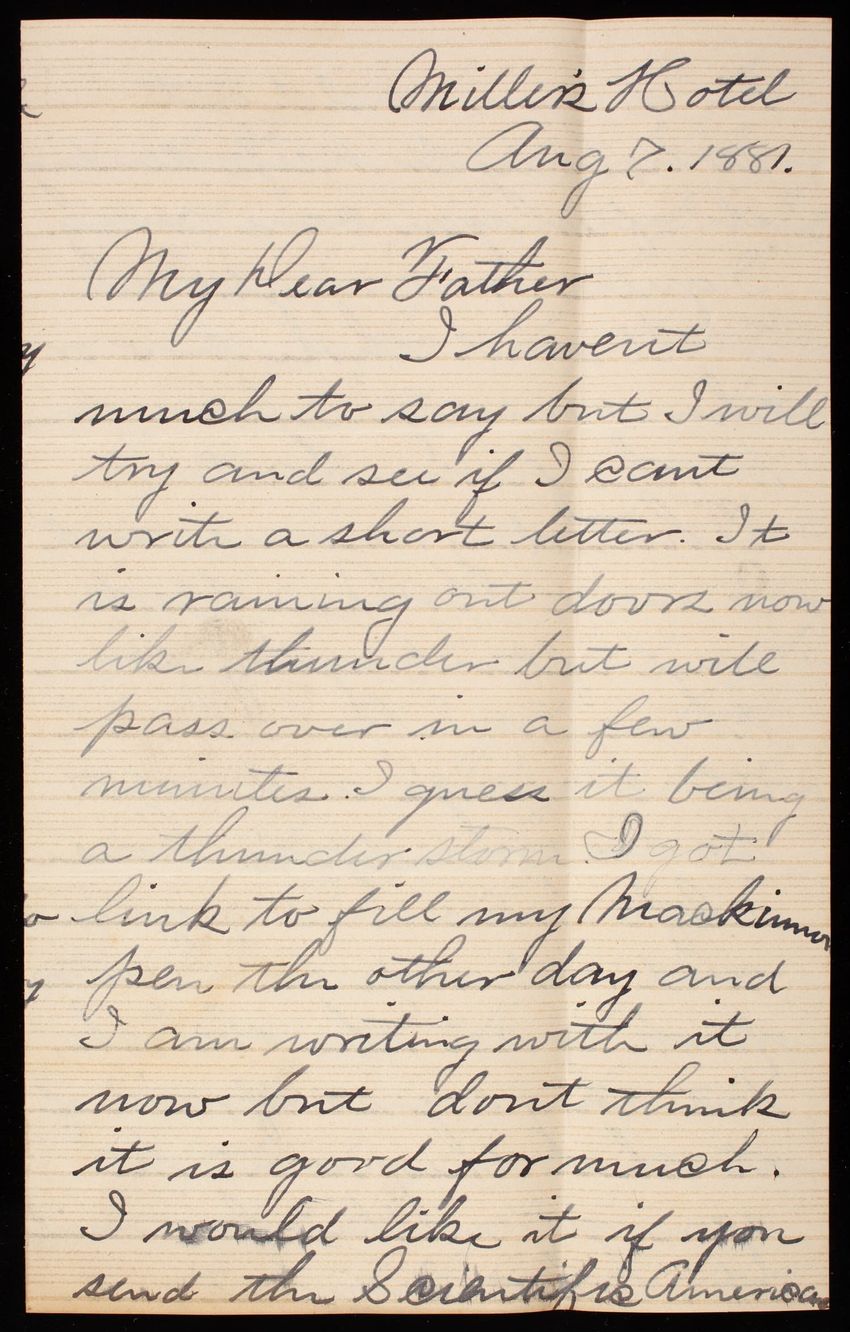 Miller's Hotel
Aug 7. 1881.
My Dear Father
I havent
much to say but I will
try and see if I cant
write a short letter. It
is raining out doors now
like thunder but will
pass over in a few
minutes I guess it being
a thunder storm. I got
link to fill my Mackinnon
pen the other day and
I am writing with it
now but dont think
it is good for much.
I would like it if you
send the Scientific American